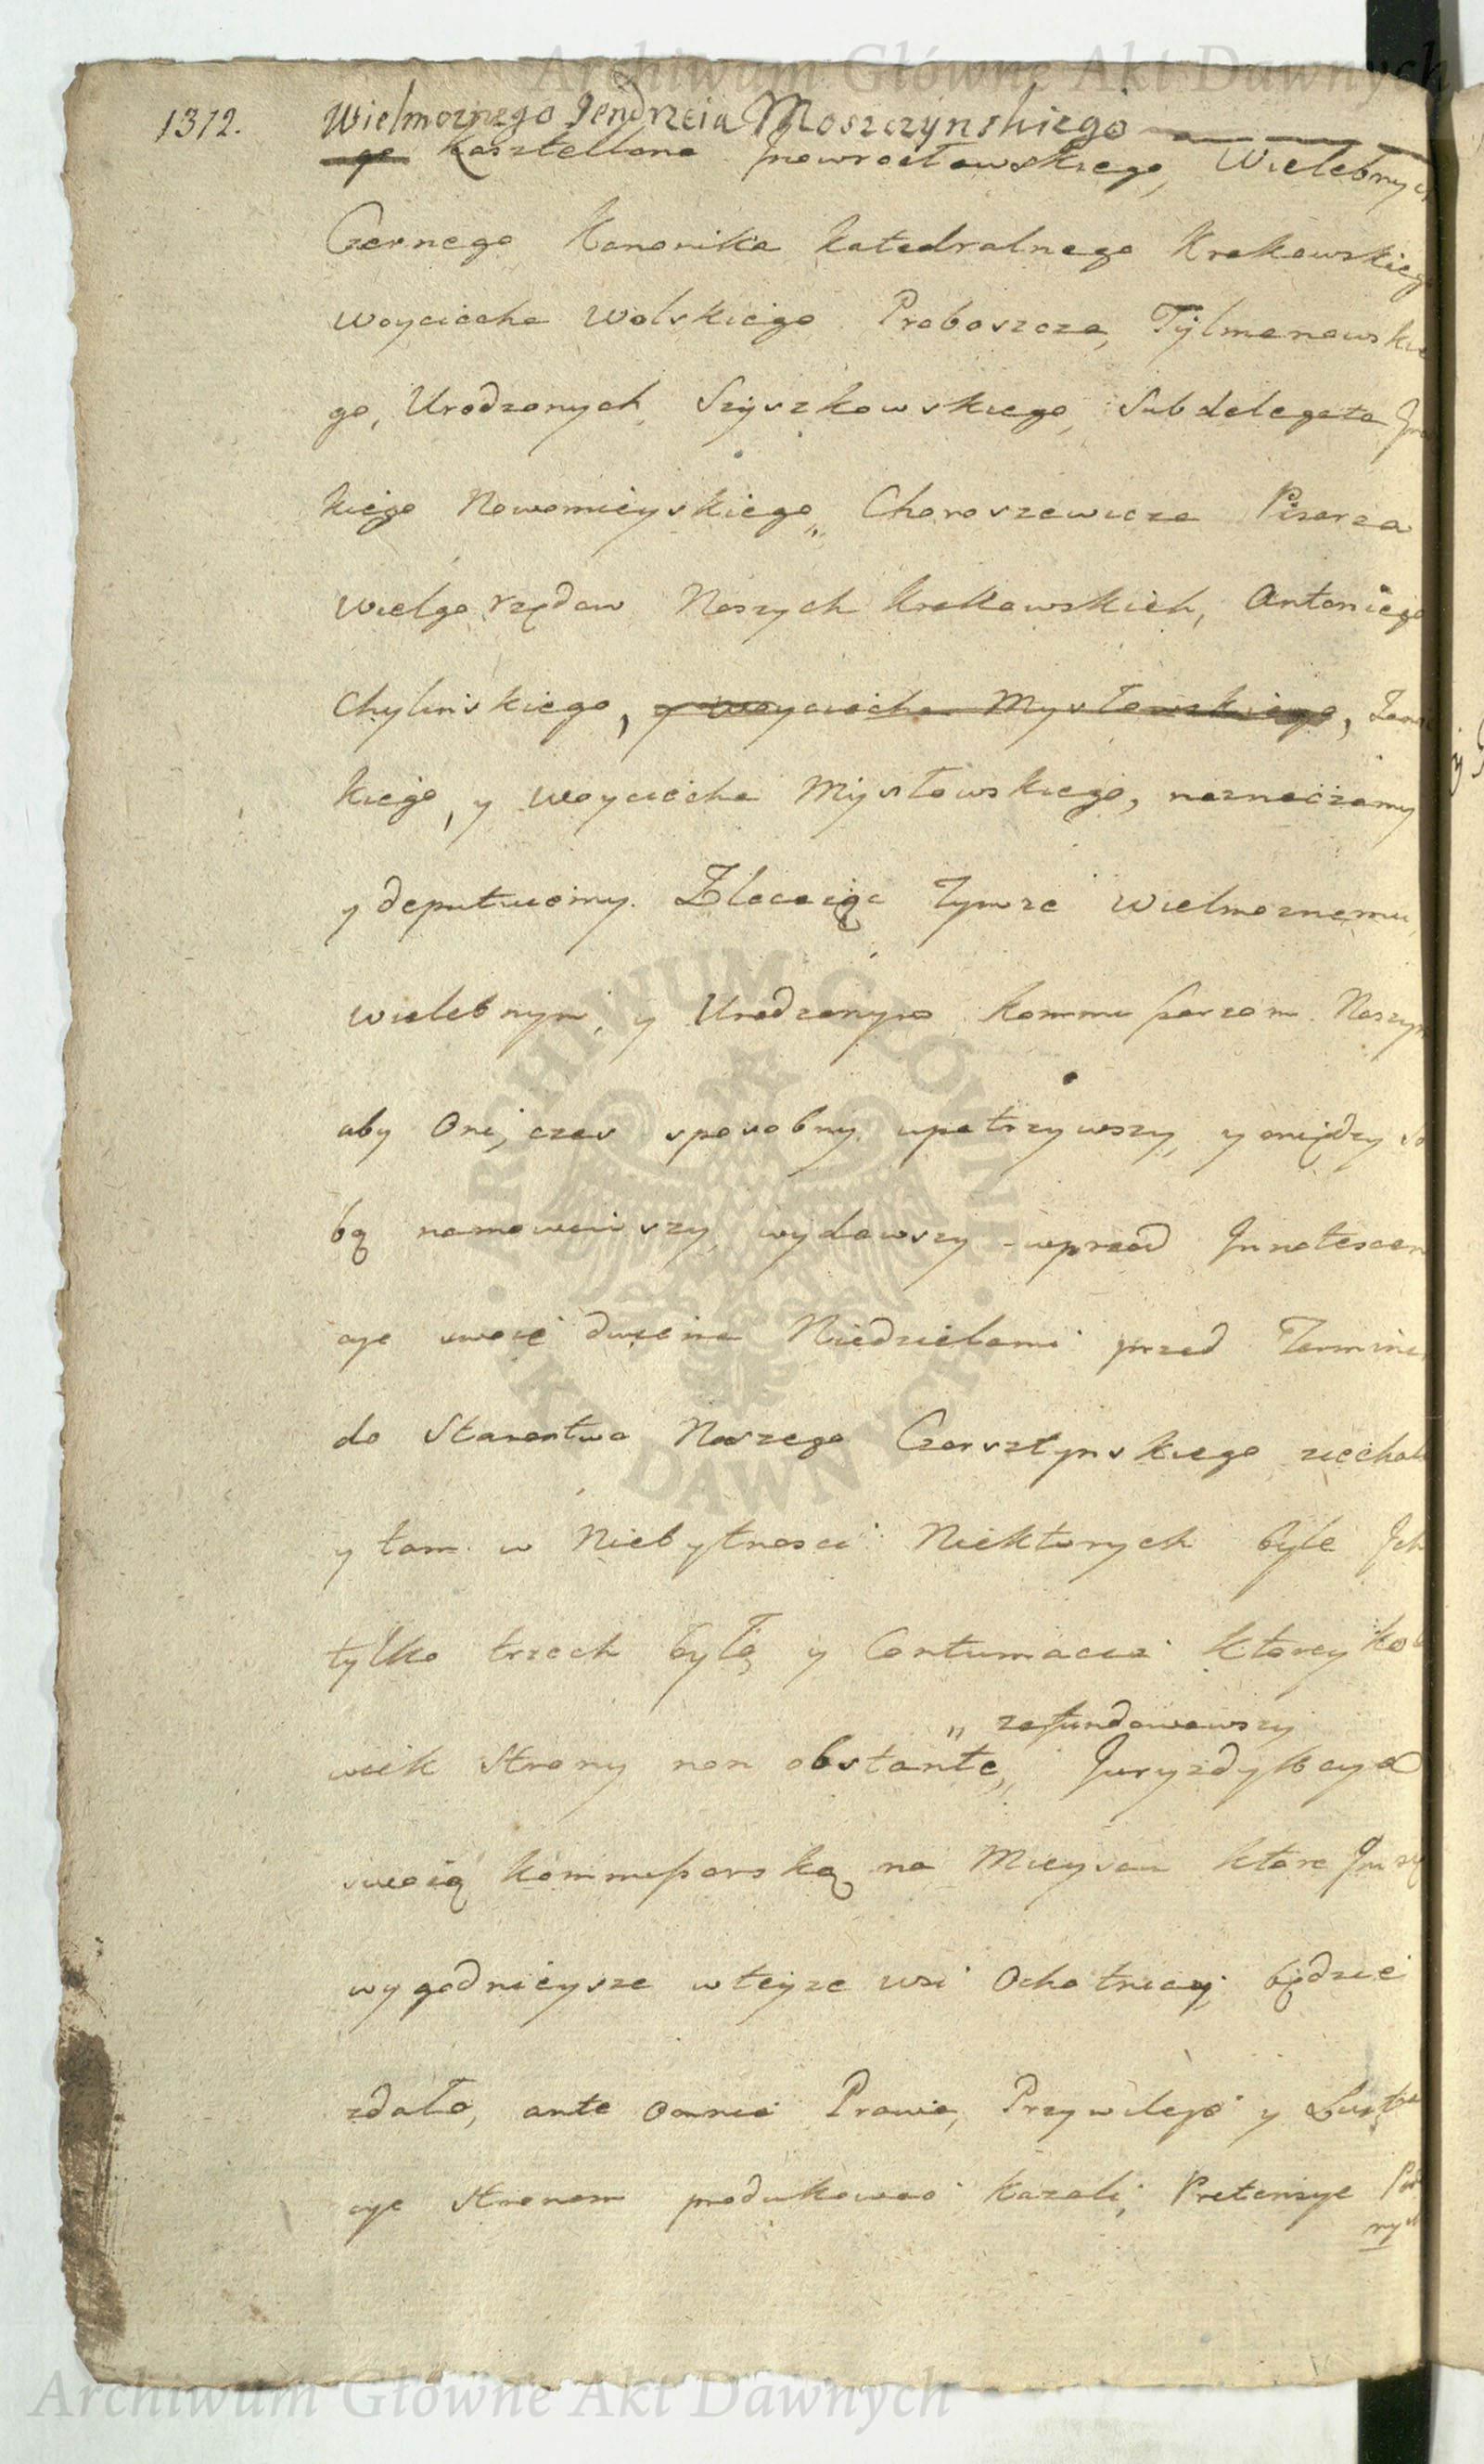 Archiwum Główne Akt Dawnych
1312.
Wielmoznego Jendrzeia Moszczynskiego
go Kasztellana Jnowrocławskiego, Wielebnych
Czernego Kanonika Katedralnego Krakowskiego
Woyciecha Wolskiego Proboszcza, Tylmanowskie
go, Urodzonych Szyszkowskiego, Subdelegata
kiego Nowomieyskiego,, Choroszewicza Pisarza
Wielgorządow Naszych Krakowskich, Antoniego
Chylinskiego, y Woyciecha Mysłowskiego,
kiego, y Woyciecha Mysłowskiego, naznaczamy
y deputuiemy. Zlecaiąc Tymze Wielmoznemu,
Wielebnym, y Urodzonym Kommissarzom Naszym
aby Oni, czas sposobny upatrzywszy, y między so
bą namowiwszy, wydawszy wprzod Jnnotescen
cye swoie dwiema Niedzielami przed Termine
do Starostwa Naszego Czorsztynskiego ziechali
y tam w Niebytnosci Niektorych byle Jch
tylko trzech było y Contumacia ktorey kol
wiek Strony non obstante,, Juryzdykcyą
,, zafundowawszy
swoią Kommissarską na Mieyscu ktore Jm
wygodnieysze w teyze wsi Ochotnicy będzie
zdało, ante omnia Prawa, Przywileje y Lustra
cye Stronom produkować kazali, Pretensye
ARCHIWUM GŁÓWNE · AKT DAWNYCH ·
Archiwum Główne Akt Dawnych